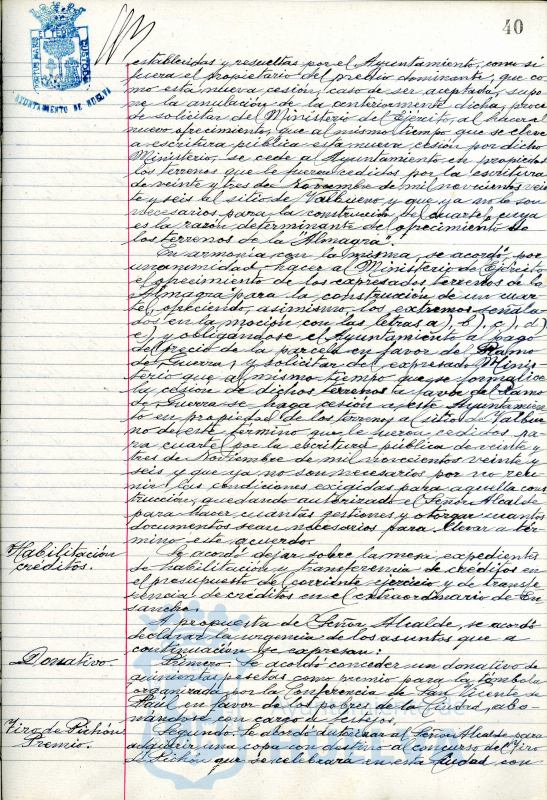 40
AYUNTAMIENTO DE HUELVA
establecidas y resueltas por el Ayuntamiento, como si
fuera el propietario del predio dominante, que co-
mo esta nueva cesión, caso de ser aceptada, supo-
ne la anulación de la anteriormente dicha, proce-
de solicitar del Ministerio del Ejército, al hacer el
nuevo ofrecimiento, que al mismo tiempo que se eleve
a escritura pública esta nueva cesión por dicho
Ministerio, se ceda al Ayuntamiento en propiedad
los terrenos que le fueron cedidos por la escritura
de veinte y tres de Noviembre de mil novecientos vein-
te y seis al sitio de Valbueno y que ya no le son
necesarios para la construcción del cuartel, cuya
es la razón determinante del ofrecimiento de
los terrenos de la "Almagra".
En armonía con la misma, se acordó, por
unanimidad, hacer al Ministerio del Ejército
el ofrecimiento de los expresados terrenos de la
"Almagra" para la construcción de un cuar-
tel, ofreciendo, asimismo, los extremos señala-
dos en la moción con las letras a), b), c), d)
e) y obligándose el Ayuntamiento al pago
del precio de la parcela en favor del Ramo
de Guerra, y solicitar del expresado Minis-
terio que al mismo tiempo que se formalice
la cesión de dichos terrenos a favor del Ramo
de Guerra se haga cesión a este Ayuntamien-
to en propiedad de los terrenos al sitio de Valbue-
no de este término que le fueron cedidos pa-
ra cuartel por la escritura pública de veinte y
tres de Noviembre de mil novecientos veinte y
seis y que ya no son necesarios por no reu-
nir las condiciones exigidas para aquella cons-
trucción, quedando autorizado el Señor Alcalde
para hacer cuantas gestiones y otorgar cuantos
documentos sean necesarios para llevar a tér-
mino este acuerdo.
Habilitación
créditos.
Se acordó dejar sobre la mesa expedientes
de habilitación y transferencia de créditos en
el presupuesto del corriente ejercicio y de transfe-
rencia de créditos en el extraordinario de En-
sanche.
A propuesta del Señor Alcalde, se acordó
declarar la urgencia de los asuntos que a
continuación se expresan:
Donativo.
Primero. Se acordó conceder un donativo de
quinientas pesetas como premio para la tómbola
organizada por la Conferencia de San Vicente de
Paúl en favor de los pobres de la Ciudad, abo-
nándose con cargo a festejos.
Tiro de Pichón
Premio.
Segundo. Se acordó autorizar al Señor Alcalde para
adquirir una copa con destino al concurso del Tiro
de Pichón que se celebrará en esta Ciudad con